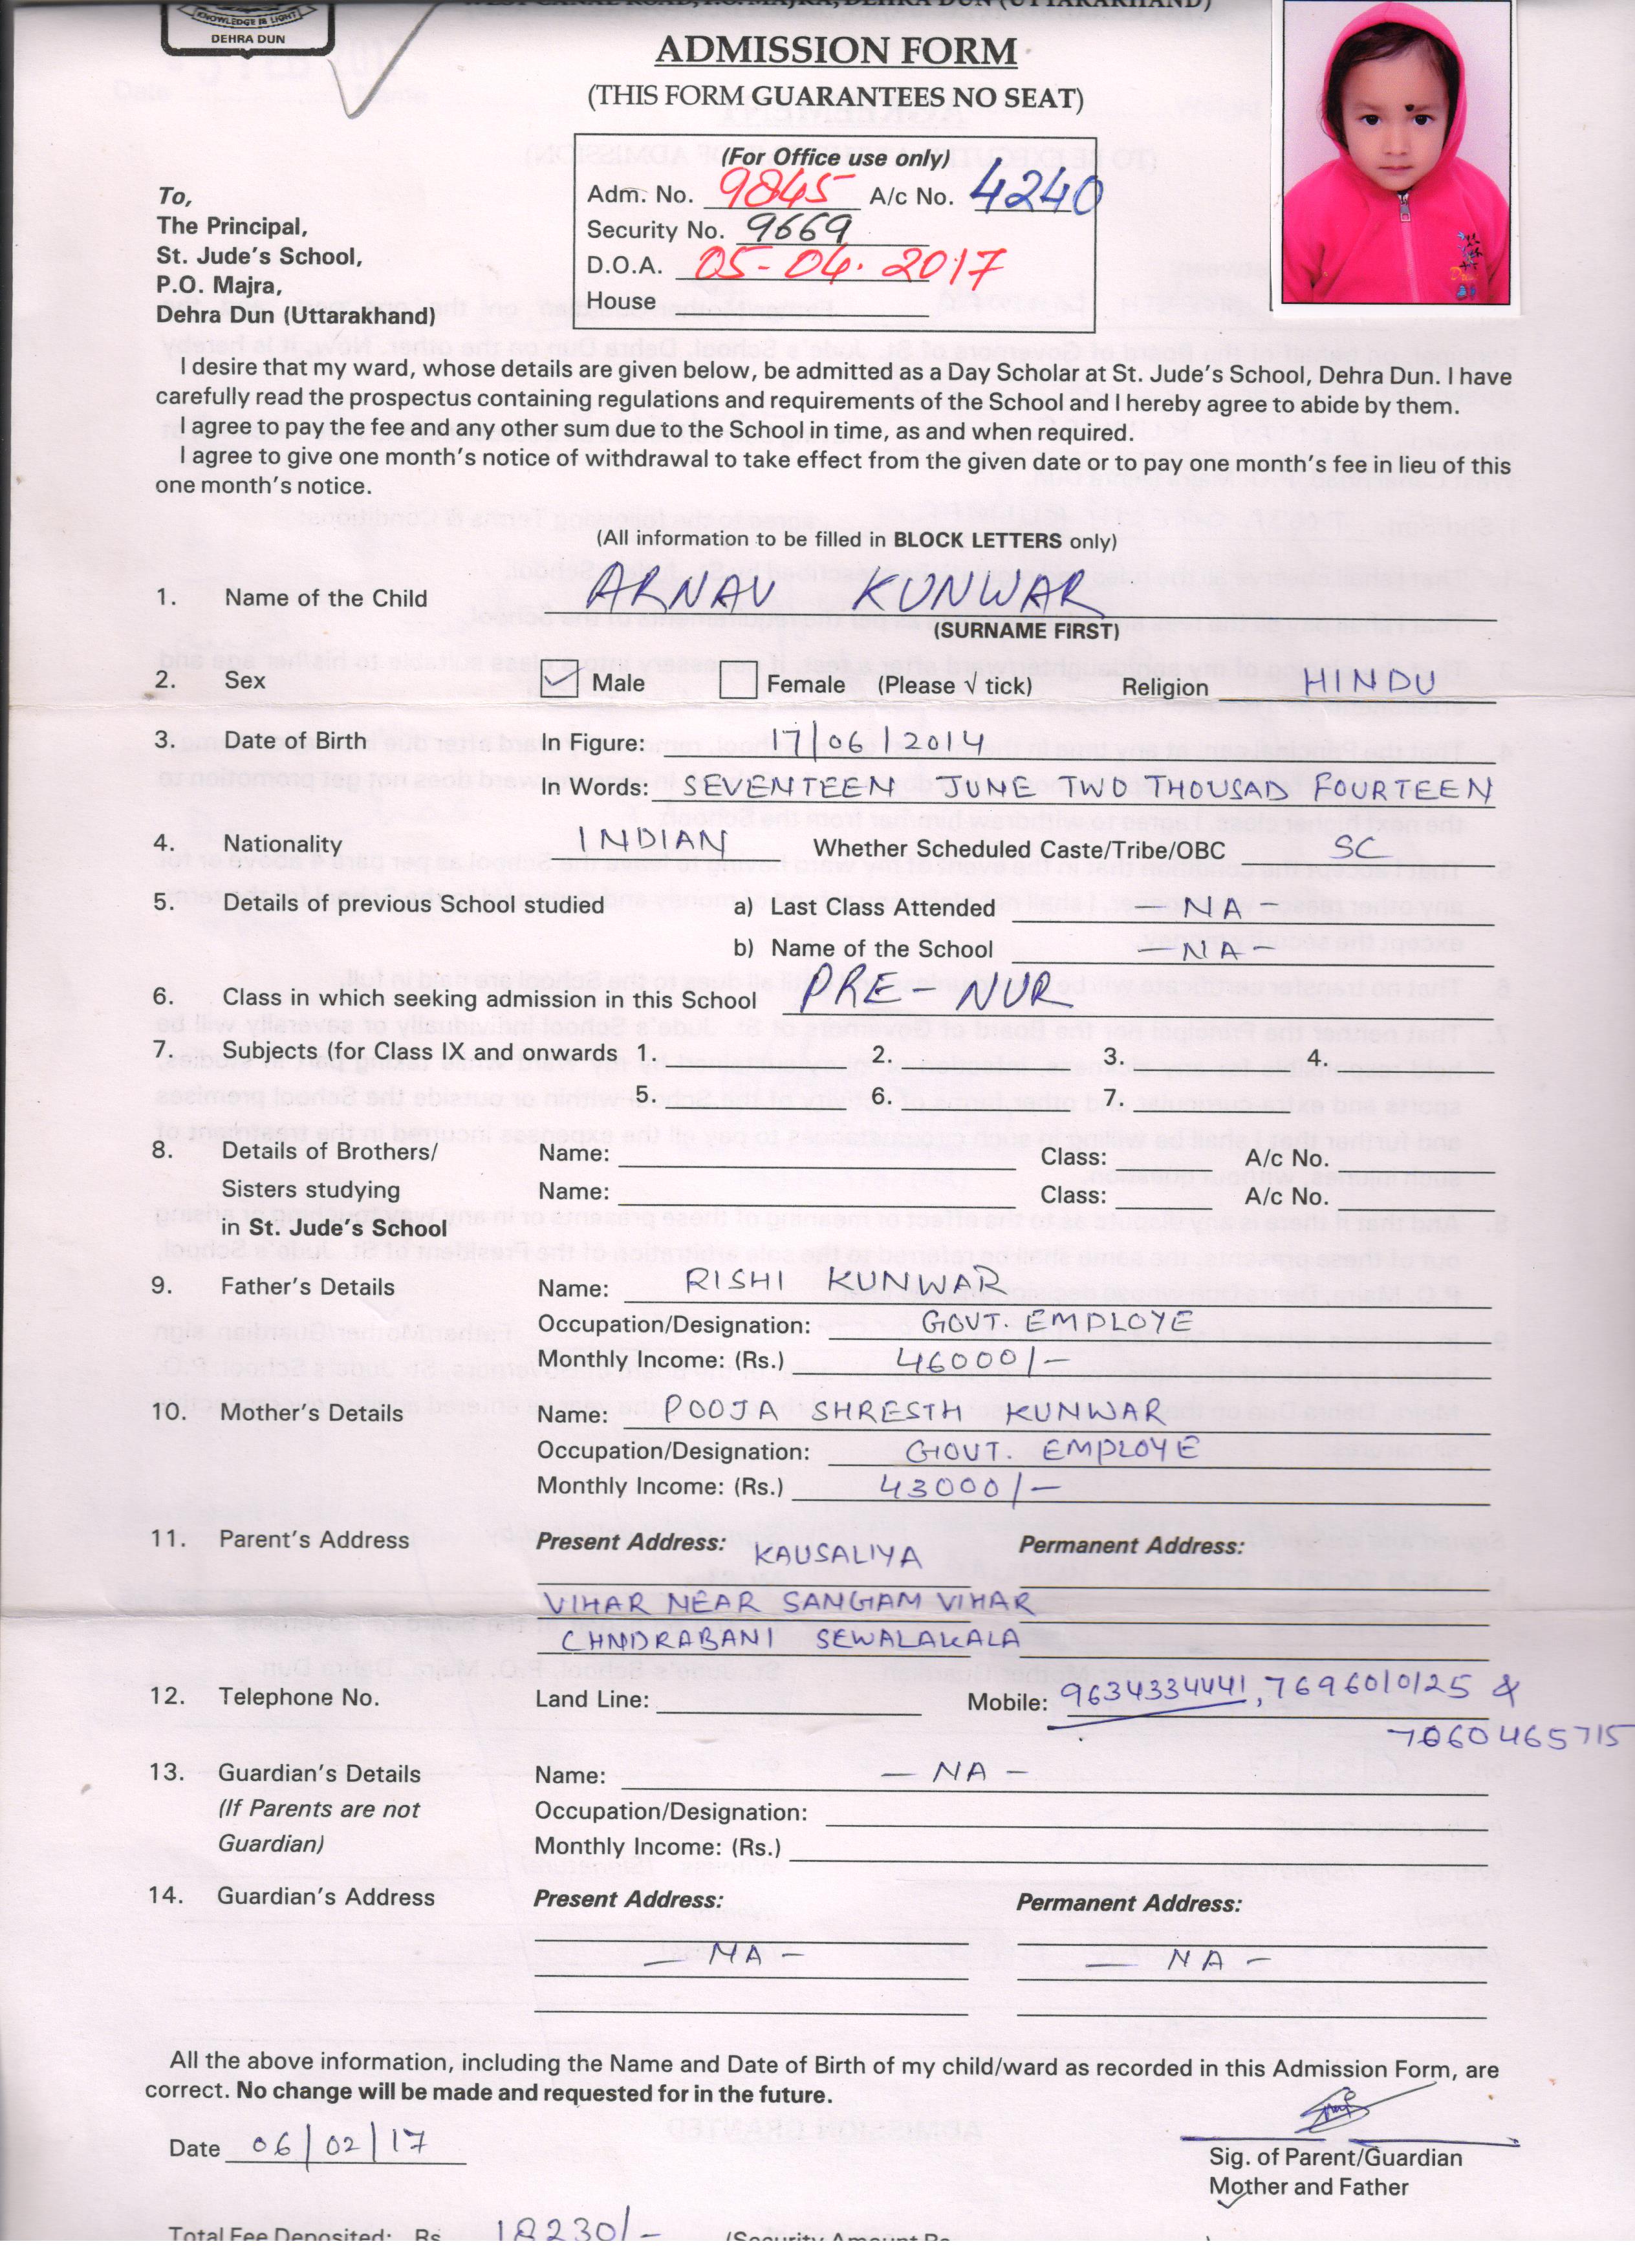 KNOWLEDGE IS LIGHT
DEHRA DUN
WEST CANAL ROAD, P.O. MAJRA, DEHRA DUN (UTTARAKHAND)
ADMISSION FORM
(THIS FORM GUARANTEES NO SEAT)
(For Office use only)
Adm. No. 9845 A/c No. 4240
Security No. 9669
D.O.A. 05-04.2017
House
To,
The Principal,
St. Jude's School,
P.O. Majra,
Dehra Dun (Uttarakhand)
I desire that my ward, whose details are given below, be admitted as a Day Scholar at St. Jude's School, Dehra Dun. I have
carefully read the prospectus containing regulations and requirements of the School and I hereby agree to abide by them.
I agree to pay the fee and any other sum due to the School in time, as and when required.
I agree to give one month's notice of withdrawal to take effect from the given date or to pay one month's fee in lieu of this
one month's notice.
(All information to be filled in BLOCK LETTERS only)
1. Name of the Child ARNAV KUNWAR
(SURNAME FIRST)
2. Sex ✓ Male Female (Please √ tick) Religion HINDU
3. Date of Birth In Figure: 17/06/2014
In Words: SEVENTEEN JUNE TWO THOUSAD FOURTEEN
4. Nationality INDIAN Whether Scheduled Caste/Tribe/OBC SC
5. Details of previous School studied a) Last Class Attended — NA -
b) Name of the School — NA -
6. Class in which seeking admission in this School PRE-NUR
7. Subjects (for Class IX and onwards 1. 2. 3. 4.
5. 6. 7.
8. Details of Brothers/ Name: Class: A/c No.
Sisters studying Name: Class: A/c No.
in St. Jude's School
9. Father's Details Name: RISHI KUNWAR
Occupation/Designation: GOVT. EMPLOYE
Monthly Income: (Rs.) 46000/-
10. Mother's Details Name: POOJA SHRESTH KUNWAR
Occupation/Designation: GOVT. EMPLOYE
Monthly Income: (Rs.) 43000/-
11. Parent's Address Present Address: KAUSALIYA Permanent Address:
VIHAR NEAR SANGAM VIHAR
CHNDRABANI SEWALAKALA
12. Telephone No. Land Line: Mobile: 9634334441, 7696010125 &
7060465715
13. Guardian's Details Name: — NA -
(If Parents are not Occupation/Designation:
Guardian) Monthly Income: (Rs.)
14. Guardian's Address Present Address: Permanent Address:
— NA - — NA -
All the above information, including the Name and Date of Birth of my child/ward as recorded in this Admission Form, are
correct. No change will be made and requested for in the future.
Date 06/02/17
Sig. of Parent/Guardian
Mother and Father
Total Fee Deposited: Rs. 18230/- (Security Amount Rs.